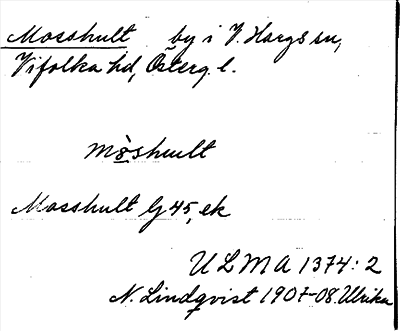 Mosshult by i V. Hargs sn,
Vifolka hd, Österg. l.
mòshult
Mosshult Gg 45, ek
ULMA 1374:2
N. Lindqvist 1907-08. Ulrika